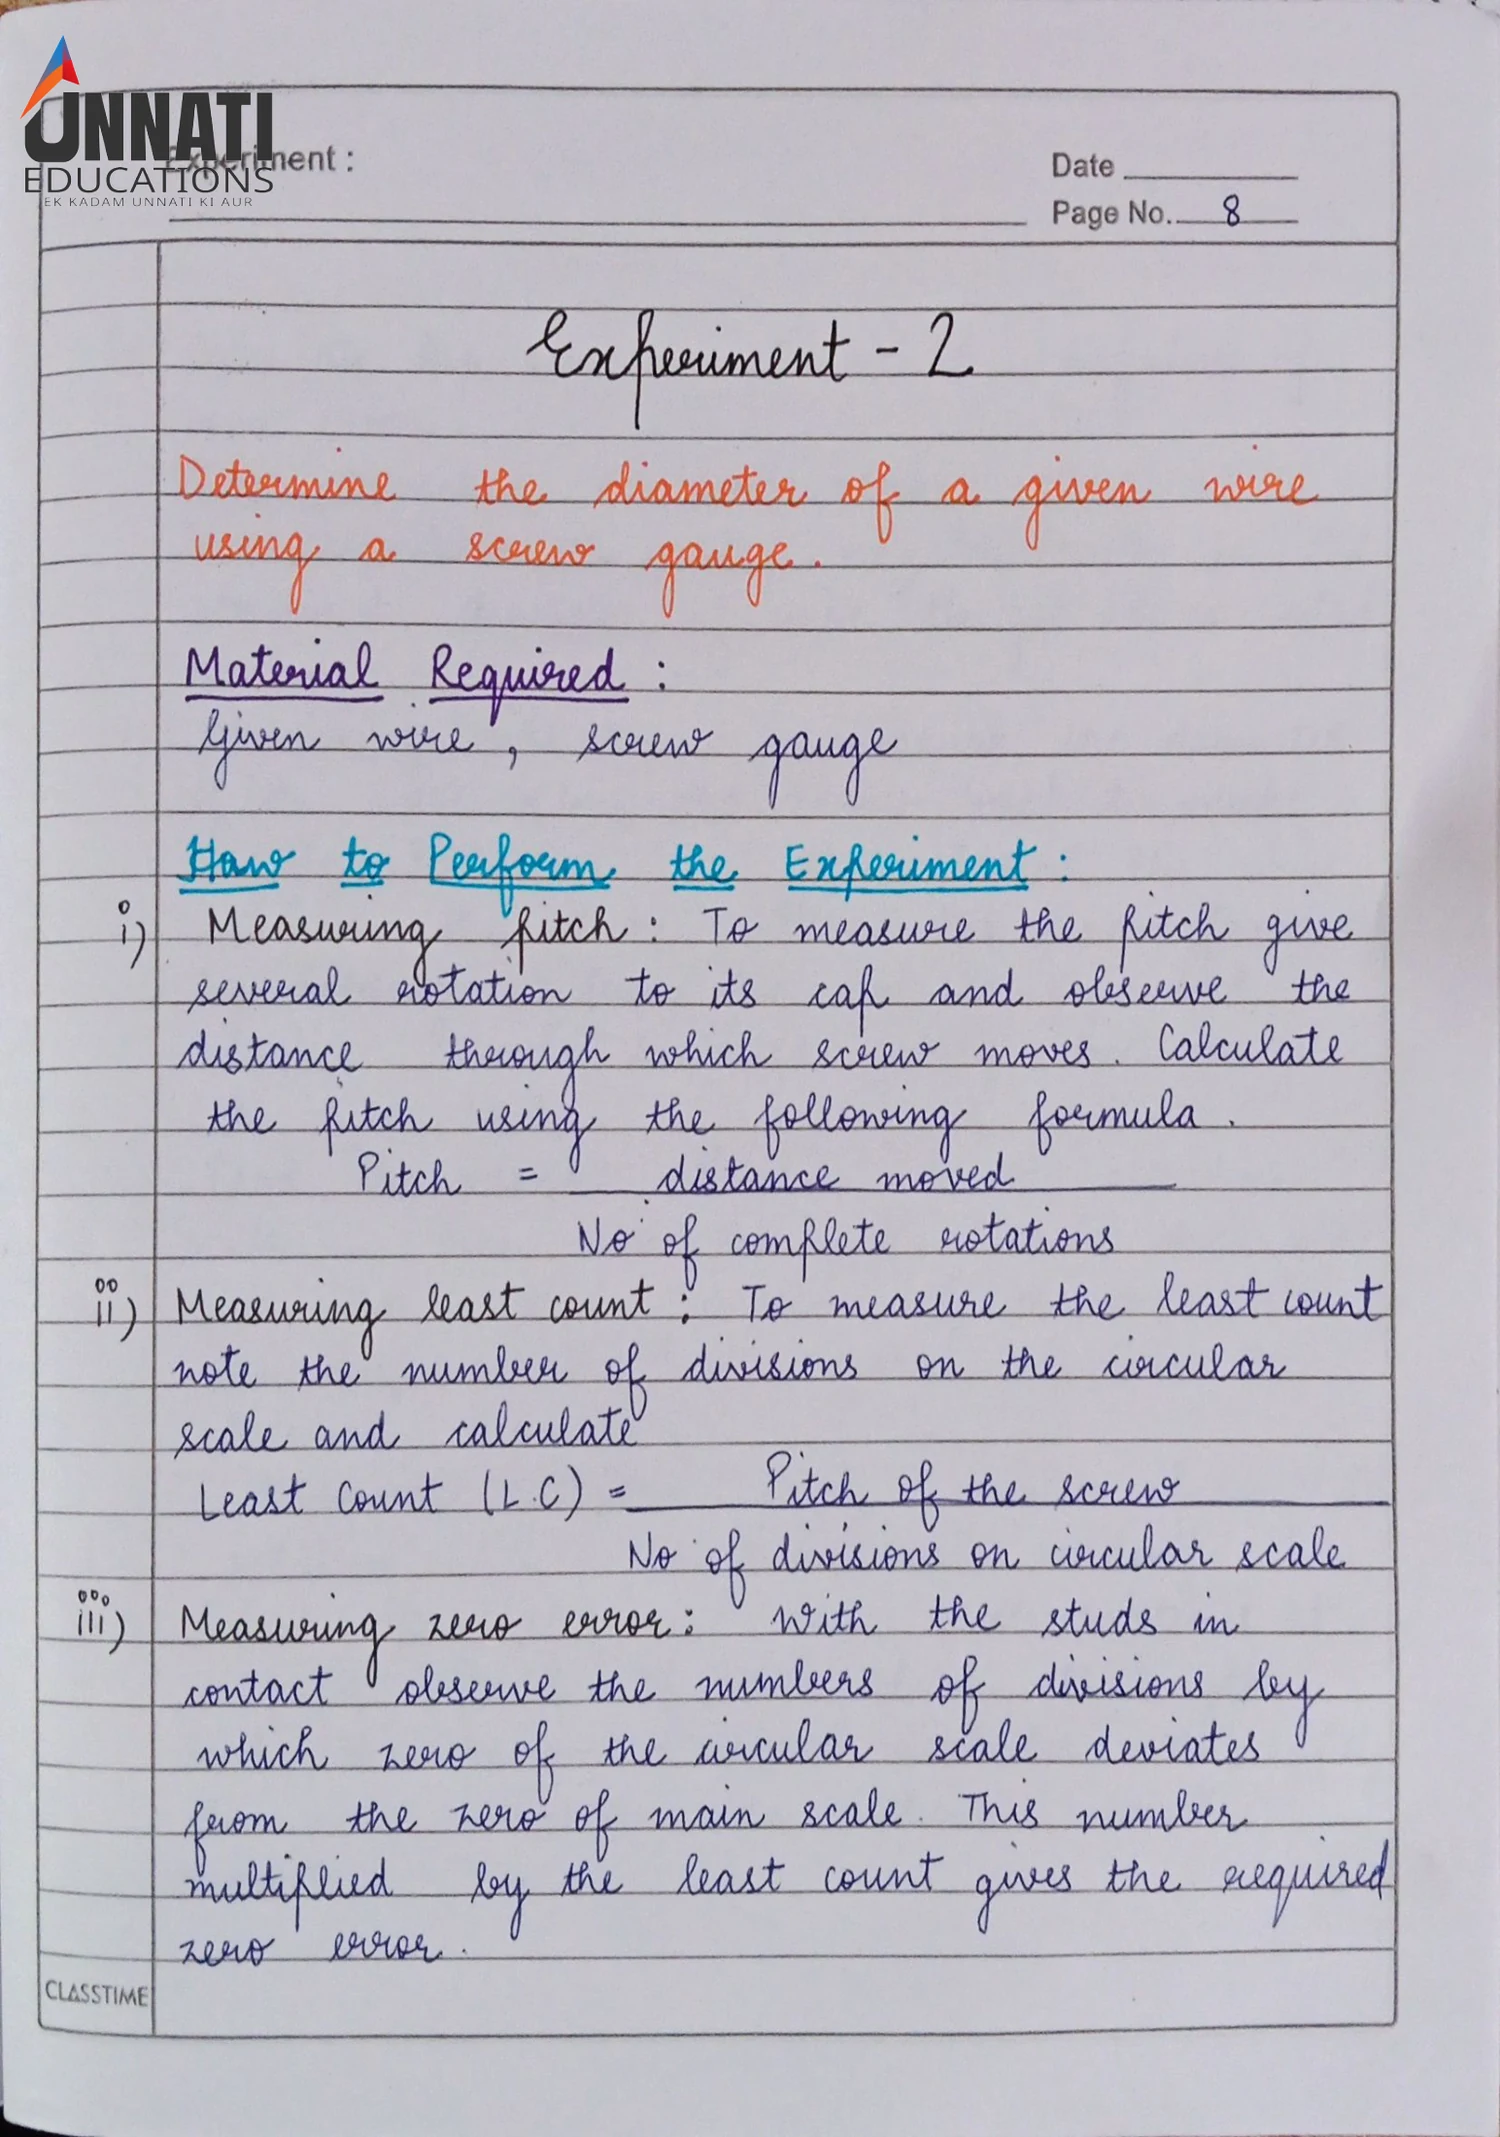 UNNATI
EDUCATIONS
EK KADAM UNNATI KI AUR
Experiment :
Date
Page No. 8
Experiment - 2
Determine the diameter of a given wire
using a screw gauge.
Material Required :
Given wire, screw gauge
How to Perform the Experiment :
i) Measuring pitch : To measure the pitch give
several rotation to its cap and observe the
distance through which screw moves. Calculate
the pitch using the following formula.
Pitch = distance moved
No of complete rotations
ii) Measuring least count : To measure the least count
note the number of divisions on the circular
scale and calculate
Least Count (L.C) = Pitch of the screw
No of divisions on circular scale
iii) Measuring zero error : With the studs in
contact observe the numbers of divisions by
which zero of the circular scale deviates
from the zero of main scale. This number
multiplied by the least count gives the required
zero error.
CLASSTIME